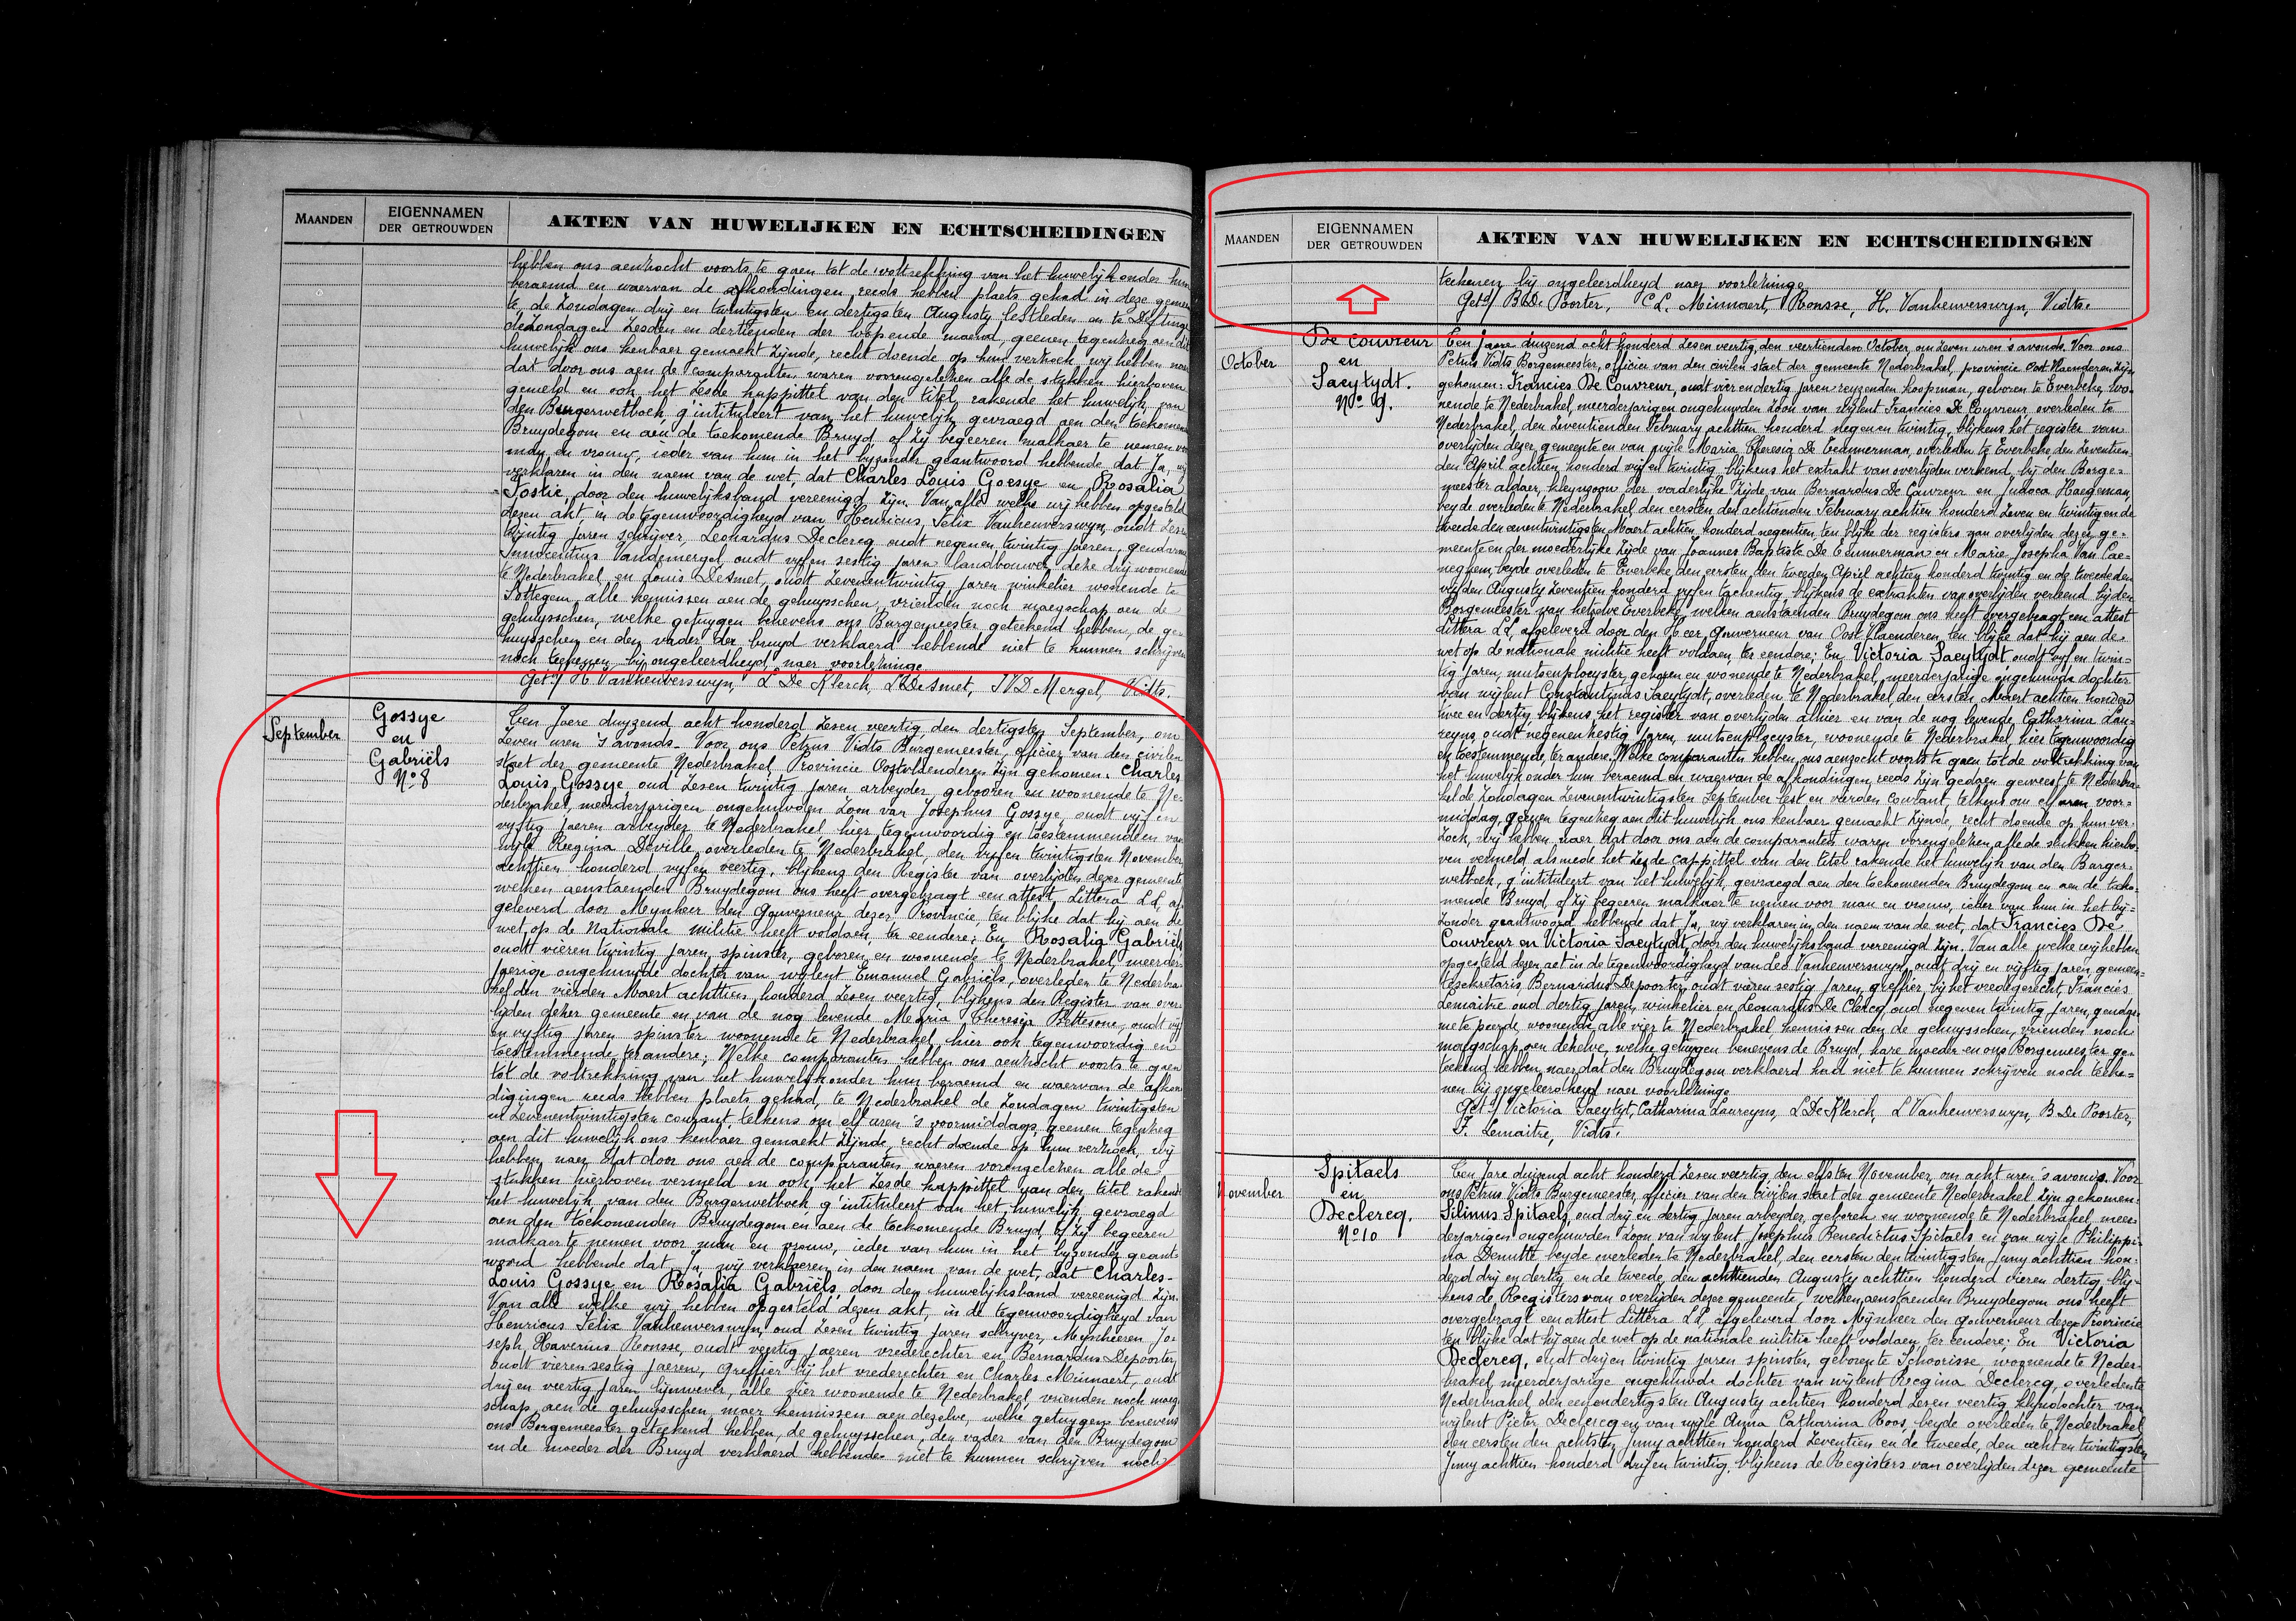 MAANDEN
EIGENNAMEN
DER GETROUWDEN
AKTEN VAN HUWELIJKEN EN ECHTSCHEIDINGEN
hebben ons aenzocht voorts te gaen tot de voltrekking van het huwelijk onder hun
beraemd en waervan de afkondingen reeds hebben plaets gehad in deze gemeen
te, de Zondagen drij en twintigsten en dertigsten Augusty lestleden en te Deftinge
de Zondagen Zesden en dertienden der loopende maend, geenen tegenzeg aen dit
huwelijk ons kenbaer gemaekt zijnde, recht doende op hun verzoek, wij hebben naer
dat door ons aen de comparanten waren voorengelezen alle de stukken hierboven
gemeld en ook het Zesde kappittel van den titel rakende het huwelijk van
den Burgerwetboek, g'intituleert van het huwelijk gevraegd aen den toekomen
Bruydegom en aen de toekomende Bruyd, of zij begeeren malkaer te nemen voor
man en vrouw, ieder van hun in het byzonder geantwoord hebbende dat Ja, wij
verklaren in den naem van de wet, dat Charles Louis Goesye en Rosalia
Tostie, door den huwelijksband vereenigd zijn. Van alle welke wij hebben opgesteld
dezen akt in de tegenwoordigheyd van Henricus Felix Vanhenverswyn, oudt Zesen
twintig Jaren schrijver, Leonardus Declercq oudt negenen twintig Jaeren, gendarm
Innocentius Vandemergel oudt vyfen sestig Jaren landbouwer, deze drij woonende
te Nederbrakel en Louis Desmet, oudt Zevenentwintig Jaren winkelier wonende te
Sottegem, alle kennissen aen de gehuysschen, vrienden noch maegschap aen de
gehuysschen, welke getuygen benevens ons Burgemeester geteekend hebben, de ge-
huysschen en den vader der bruyd verklaerd hebbende niet te kunnen schrijven
noch teekenen bij ongeleerdheyd, naer voorlezinge.
Get:/ H Vanhenverswyn, L De Klerck, L DeSmet, I VD Mergel, Vidts.
September
Gossye
en
Gabriëls
No 8
Een Jaere duyzend acht honderd Zesen veertig den dertigsten September, om
Zeven uren 's avonds. Voor ons Petrus Vidts Burgemeester, officier van den civilen
staet der gemeente Nederbrakel, Provincie Oostvlaenderen zijn gekomen: Charles
Louis Gossye, oud Zesen twintig Jaren arbeyder, gebooren en woonende te Ne-
derbrakel, meerderjarigen ongehuwden Zoon van Josephus Gossye, oudt vijf en
vyftig Jaeren arbeyder te Nederbrakel hier tegenwoordig en toestemmende en van
wyle Regina Deville, overleden te Nederbrakel, den vyfen twintigsten November
achttien honderd vyfen veertig, blijkens den Register van overlyden dezer gemeente
welken aenstaenden Bruydegom ons heeft overgebragt een attest Littera LL, af
geleverd door Mynheer den Gouverneur dezer Provincie, ten blijke dat hij aen de
wet op de Nationale militie heeft voldaen, ter eendere; En Rosalia Gabriëls
oudt vieren twintig Jaren, spinster, geboren en woonende te Nederbrakel, meerder-
jaerige ongehuwde dochter van wylent Emanuel Gabriëls, overleden te Nederbra
kel den vierden Maert achttien honderd Zesen veertig, blijkens den Register van over-
lyden dezer gemeente en van de nog levende Maria Theresia Bettesone, oudt vijf
en vyftig Jaren spinster woonende te Nederbrakel, hier ook tegenwoordig en
toestemmende ter andere; Welke comparanten hebben ons aenzocht voorts te gaen
tot de voltrekking van het huwelijk onder hun beraemd en waervan de afkon
digingen reeds hebben plaets gehad, te Nederbrakel de Zondagen twintigsten
en Zevenentwintigsten courant, telkens om elf uren 's voormiddags, geenen tegenzeg
aen dit huwelijk ons kenbaer gemaekt zijnde, recht doende op hun verzoek, wij
hebben naer dat door ons aen de comparanten waeren vorengelezen alle de
stukken hierboven vermeld en ook het Zesde kappittel van den titel rakende
het huwelijk van den Burgerwetboek, g'intituleert van het huwelijk gevraegd
aen den toekomenden Bruydegom en aen de toekomende Bruyd, of zij begeeren
malkaer te nemen voor man en vrouw, ieder van hun in het byzonder geant-
woord hebbende dat Ja, wij verklaeren in den naem van de wet, dat Charles-
Louis Gossye en Rosalia Gabriëls, door den huwelijksband vereenigd zijn.
Van alle welke wij hebben opgesteld dezen akt, in de tegenwoordigheyd van
Henricus Felix Vanhenverswyn, oud Zesen twintig Jaren schryver, Mynheeren Jo-
seph Xaverius Ronsse, oudt veertig Jaeren vrederechter en Bernardus Depoorter,
oudt vieren sestig Jaeren, greffier bij het vrederechter en Charles Minnaert, oudt
drijen veertig Jaren lijnwever, alle vier woonende te Nederbrakel, vrienden noch maeg
schap aen de gehuysschen, maer kennissen aen dezelve, welke getuygen benevens
ons Borgemeester geteekend hebben, de gehuysschen, den vader van den Bruydegom
en de moeder der Bruyd verklaerd hebbende niet te kunnen schrijven noch
MAANDEN
EIGENNAMEN
DER GETROUWDEN
AKTEN VAN HUWELIJKEN EN ECHTSCHEIDINGEN
teekenen bij ongeleerdheyd naer voorlezinge
Get:/ B De Porter, C L. Minnaert, Ronsse, H. Vanhenverswyn, Vidts.
October
De Couvreur
en
Saeytydt.
No 9.
Een Jaere duyzend acht honderd Zesen veertig, den veertienden October, om Zeven uren 's avonds. Voor ons
Petrus Vidts Borgemeester, officier van den civilen staet der gemeente Nederbrakel, provincie Oost Vlaenderen zijn
gekomen: Francies De Couvreur, oudt vier en dertig Jaren reyzenden koopman, geboren te Everbeke, wo-
nende te Nederbrakel, meerderjarigen ongehuwden Zoon van wijlent Francies De Couvreur, overleden te
Nederbrakel, den Zeventienden February achttien honderd negenen twintig, blijkens het register van
overlijden dezer gemeente en van wyle Maria Theresia De Temmerman, overleden te Everbeke den Zeventien
den April achttien honderd vijf en twintig, blijkens het extrakt van overlyden verleend bij den Borge-
meester aldaer, kleynzoon der vaderlijke Zijde van Bernardus De Couvreur en Judoca Haegeman,
beyde overleden te Nederbrakel den eersten den achtienden February achtien honderd Zeven en twintig en de
tweede den eenentwintigsten Maert achtien honderd negentien, ten blijke der registers van overlyden dezer ge-
meente en der moederlijke Zijde van Joannes Baptiste De Temmerman en Marie Josepha Van Cae-
neghem, beyde overleden te Everbeke, den eersten den tweeden April achtien honderd twintig en de tweede den
vijfden Augusty Zeventien honderd vyfen tachentig, blijkens de extrakten van overlyden verleend bij den
Borgemeester van hetzelve Everbeke, welken aenstaenden Bruydegom ons heeft overgebragt een attest
Littera LL, afgeleverd door den Heer Gouverneur van Oost Vlaenderen, ten blijke dat hij aen de
wet op de nationale militie heeft voldaen, ter eendere; En Victoria Saeytydt, oudt vyf en twin-
tig Jaren, mutsenploeyster, geboren en wonende te Nederbrakel, meerderjarige ongehuwde dochter
van wijlent Constantinus Saeytydt, overleden te Nederbrakel den eersten Maert achtien honderd
twee en dertig, blijkens het register van overlyden alhier en van de nog levende Catharina Lau-
reyns, oudt negenenzestig Jaren, mutsenploeyster, woonende te Nederbrakel, hier tegenwoordig
en toestemmende, ter andere. Welke comparanten hebben ons aenzocht voorts te gaen tot de voltrekking van
het huwelijk onder hun beraemd en waervan de afkondingen reeds zijn gedaen geweest te Nederbra-
kel de Zondagen Zevenentwintigsten September lest en vierden courant, telkens om elf uren voor-
middag, geenen tegenzeg aen dit huwelijk ons kenbaer gemaekt zijnde, recht doende op hun ver-
zoek, wij hebben naer dat door ons aen de comparanten waren vorengelezen alle de stukken hierbo-
ven vermeld, alsmede het Zesde cappittel van den titel rakende het huwelijk van den Burger-
wetboek, g'intituleert van het huwelijk, gevraegd aen den toekomenden Bruydegom en aen de toeko-
mende Bruyd, of zij begeeren malkaer te nemen voor man en vrouw, ieder van hun in het bij-
zonder geantwoord hebbende dat Ja, wij verklaren in den naem van de wet, dat Francies De
Couvreur en Victoria Saeytydt, door den huwelijksband vereenigd zijn. Van alle welke wij hebben
opgesteld dezen act in de tegenwoordigheyd van Leo Vanhenverswyn, oudt drij en vijftig Jaren, gemeen-
tesecretaris, Bernardus Depoorter, oudt vieren sestig Jaren, greffier bij het vredegerecht, Francies
Lemaitre oud dertig Jaren, winkelier en Leonardus De Clercq, oud negenen twintig Jaren, gendar-
me te peerde, woonende alle vier te Nederbrakel, kennissen aen de gehuysschen, vrienden noch
maegschap aen dezelve, welke getuygen benevens de Bruyd, hare moeder en ons Borgemeester ge-
teekend hebben, naer dat den Bruydegom verklaerd had niet te kunnen schrijven noch teeke-
nen bij ongeleerdheyd naer voorlezinge
Get:/ Victoria Saeytyt, Catharina Laureyns, L De Klerck, L Vanhenverswyn, B De Poorter,
F. Lemaitre, Vidts.
November
Spitaels
en
Declercq.
No 10
Een Jare duyzend acht honderd Zesen veertig den elfsten November, om acht uren 's avonds. Voor
ons Petrus Vidts Burgemeester, officier van den civilen staet der gemeente Nederbrakel zijn gekomen:
Silinus Spitaels, oud drij en dertig Jaren arbeyder, geboren en woonende te Nederbrakel, meer-
derjarigen ongehuwden Zoon van wylent Josephus Benedictus Spitaels en van wyle Philippi-
na Demitte beyde overleden te Nederbrakel, den eersten den twintigsten Juny achttien hon-
derd drij en dertig en de tweede, den achttienden Augusty achttien honderd vieren dertig, blij-
kens de Registers van overlyden dezer gemeente, welken aenstaenden Bruydegom ons heeft
overgebragt een attest Littera LL, afgeleverd door Mijnheer den Gouverneur dezer Provincie
ten blijke dat hij aen de wet op de nationale militie heeft voldaen, ter eendere; En Victoria
Declercq, oudt drijen twintig Jaren spinster, geboren te Schoorisse, woonende te Neder-
brakel, meerderjarige ongehuwde dochter van wijlent Regina Declercq, overleden te
Nederbrakel, den eenendertigsten Augusty achtien honderd Zeven veertig kleyndochter van
wijlent Pieter Declercq en van wyle Anna Catharina Roos, beyde overleden te Nederbrakel
den eersten den achtsten Juny achttien honderd Zeventien en de tweede, den acht en twintigsten
Juny achttien honderd drijen twintig, blijkens de Registers van overlyden dezer gemeente